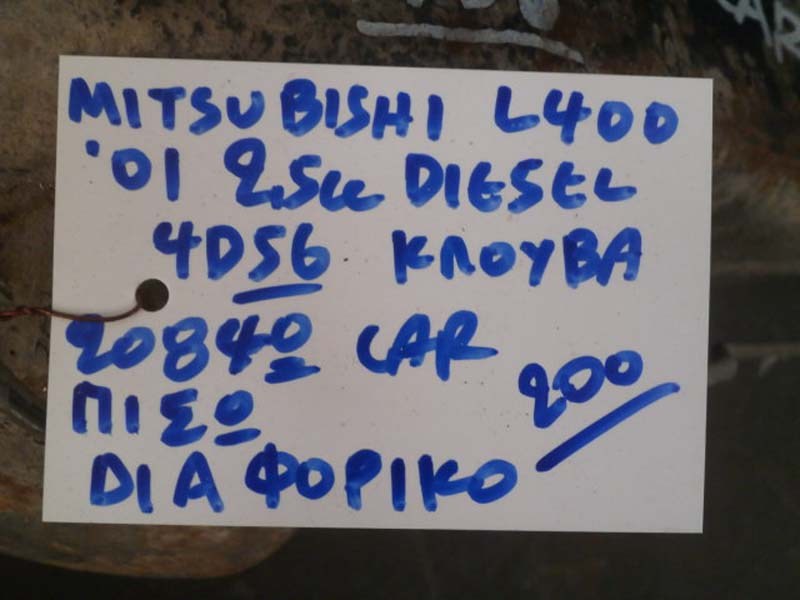 MITSUBISHI L400
'01 2,5cc DIESEL
4D56 ΚΛΟΥΒΑ
20840 CAR
200
ΠΙΣΩ
DIAΦΟΡΙΚΟ